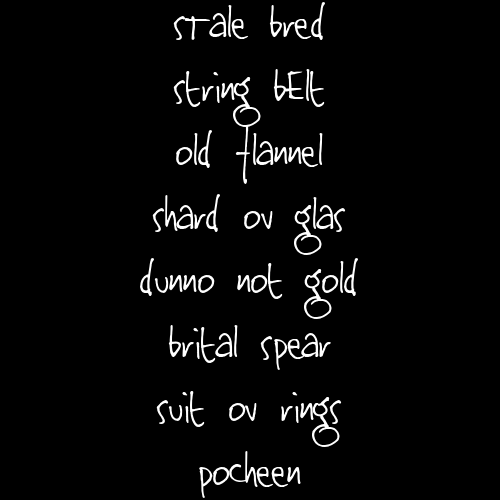 sTale bred
string bElt
old flannel
shard ov glas
dunno not gold
brital spear
suit ov rings
pocheen